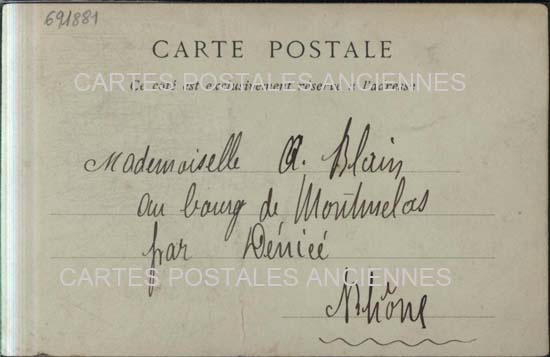 691881
CARTE POSTALE
CARTES POSTALES ANCIENNES
Ce côté est exclusivement réservé à l'adresse
Mademoiselle A. Blain
au bourg de Montmelas
par Dénicé
CARTES POSTALES ANCIENNES
Rhône